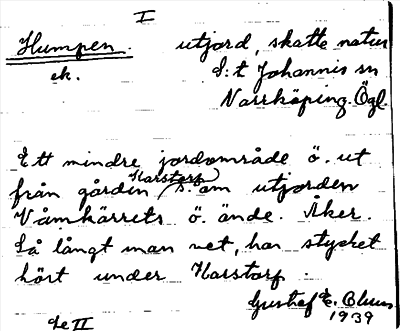 I
Humpen. utjord, skatte natur
ek. S:t Johannis sn
Norrköping. Ögl.
Ett mindre jordområde ö. ut
från gården Harstorp, s. om utjorden
Våmkärrets ö. ände. Åker.
Så långt man vet, har stycket
hört under Harstorp.
Gustaf E. Blum
1939
Le II